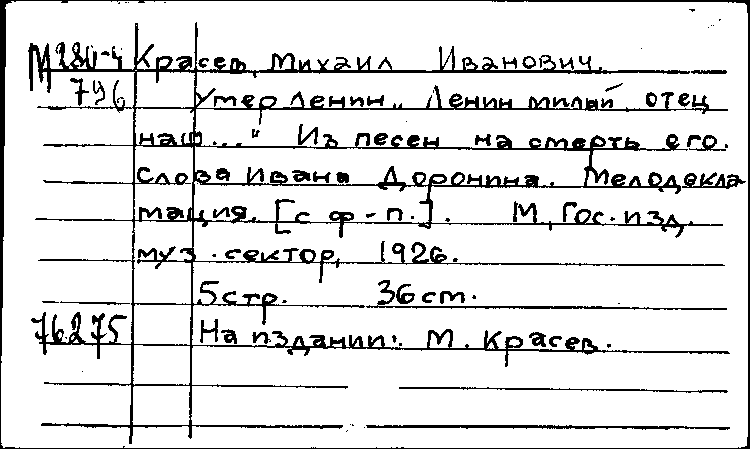 М 280-4 Красев, Михаил Иванович.
796 Умер Ленин „Ленин милый отец
наш..." Из песен на смерть его.
Слова Ивана Доронина. Мелодекла
мация. [с ф-п.]. М, Гос. изд,
муз. сектор, 1926.
5 стр. 36 cm.
76275 На издании: М. Красев.